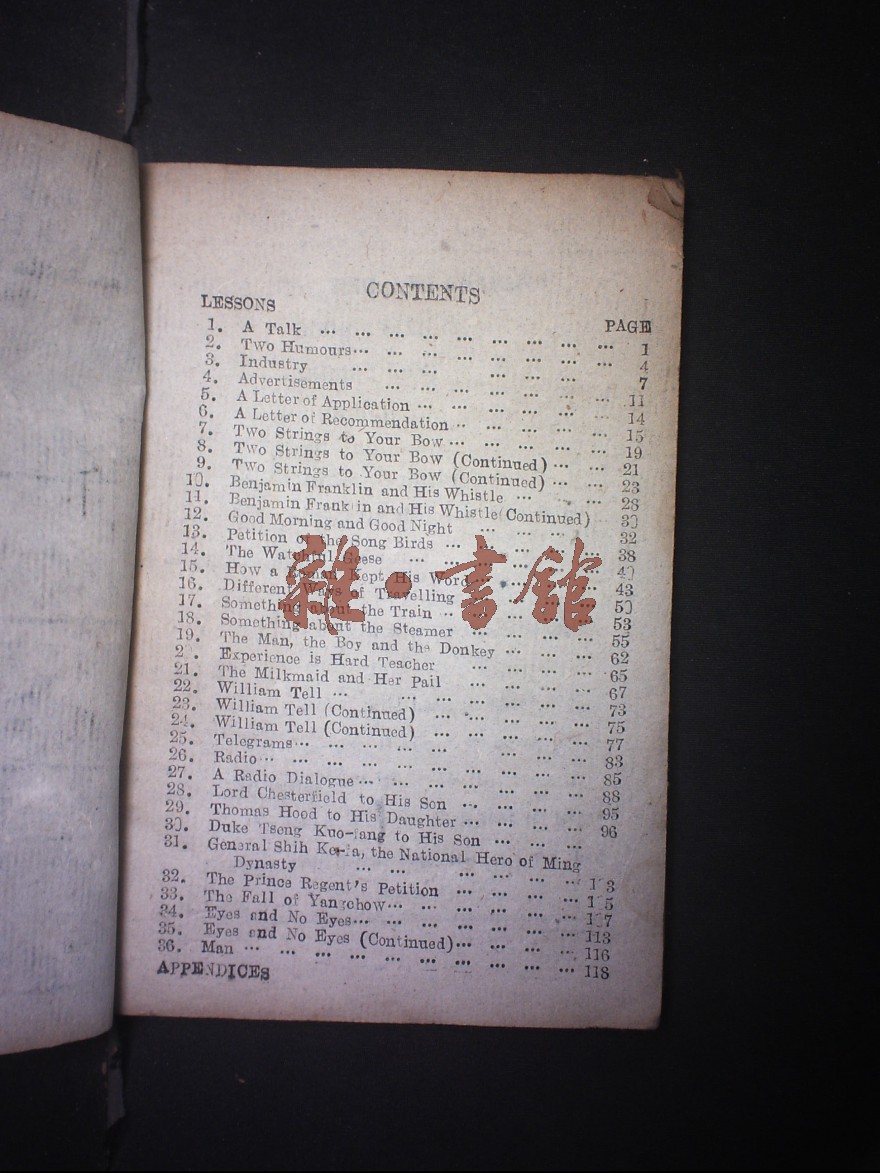 CONTENTS
LESSONS PAGE
1. A Talk ... ... ... ... ... ... ... ... ... 1
2. Two Humours ... ... ... ... ... ... ... 4
3. Industry ... ... ... ... ... ... 7
4. Advertisements ... ... ... ... ... ... 11
5. A Letter of Application ... ... ... ... ... 14
6. A Letter of Recommendation ... ... ... ... 15
7. Two Strings to Your Bow ... ... ... ... ... 19
8. Two Strings to Your Bow (Continued) ... ... 21
9. Two Strings to Your Bow (Continued) ... ... 23
10. Benjamin Franklin and His Whistle ... ... ... 28
11. Benjamin Franklin and His Whistle (Continued) 30
12. Good Morning and Good Night ... ... ... 32
13. Petition of the Song Birds ... ... ... ... 38
14. The Watchful Geese ... ... ... ... ... 40
15. How a Roman Kept His Word ... ... ... 43
16. Different Ways of Travelling ... ... ... 50
17. Something about the Train ... ... ... ... 53
18. Something about the Steamer ... ... ... ... 55
19. The Man, the Boy and the Donkey ... ... ... 62
20. Experience is Hard Teacher ... ... ... ... 65
21. The Milkmaid and Her Pail ... ... ... ... 67
22. William Tell ... ... ... ... ... ... ... 73
23. William Tell (Continued) ... ... ... ... ... 75
24. William Tell (Continued) ... ... ... ... ... 77
25. Telegrams ... ... ... ... ... ... ... 83
26. Radio ... ... ... ... ... ... ... ... 85
27. A Radio Dialogue ... ... ... ... ... ... 88
28. Lord Chesterfield to His Son ... ... ... ... 95
29. Thomas Hood to His Daughter ... ... ... ... 96
30. Duke Tseng Kuo-fang to His Son ... ... ...
31. General Shih Ko-fa, the National Hero of Ming
Dynasty ... ... ... ... ... ... 103
32. The Prince Regent's Petition ... ... ... ... 105
33. The Fall of Yangchow ... ... ... ... ... 107
34. Eyes and No Eyes ... ... ... ... ... ... 113
35. Eyes and No Eyes (Continued) ... ... ... ... 116
36. Man ... ... ... ... ... ... ... ... ... 118
APPENDICES
雜·書館